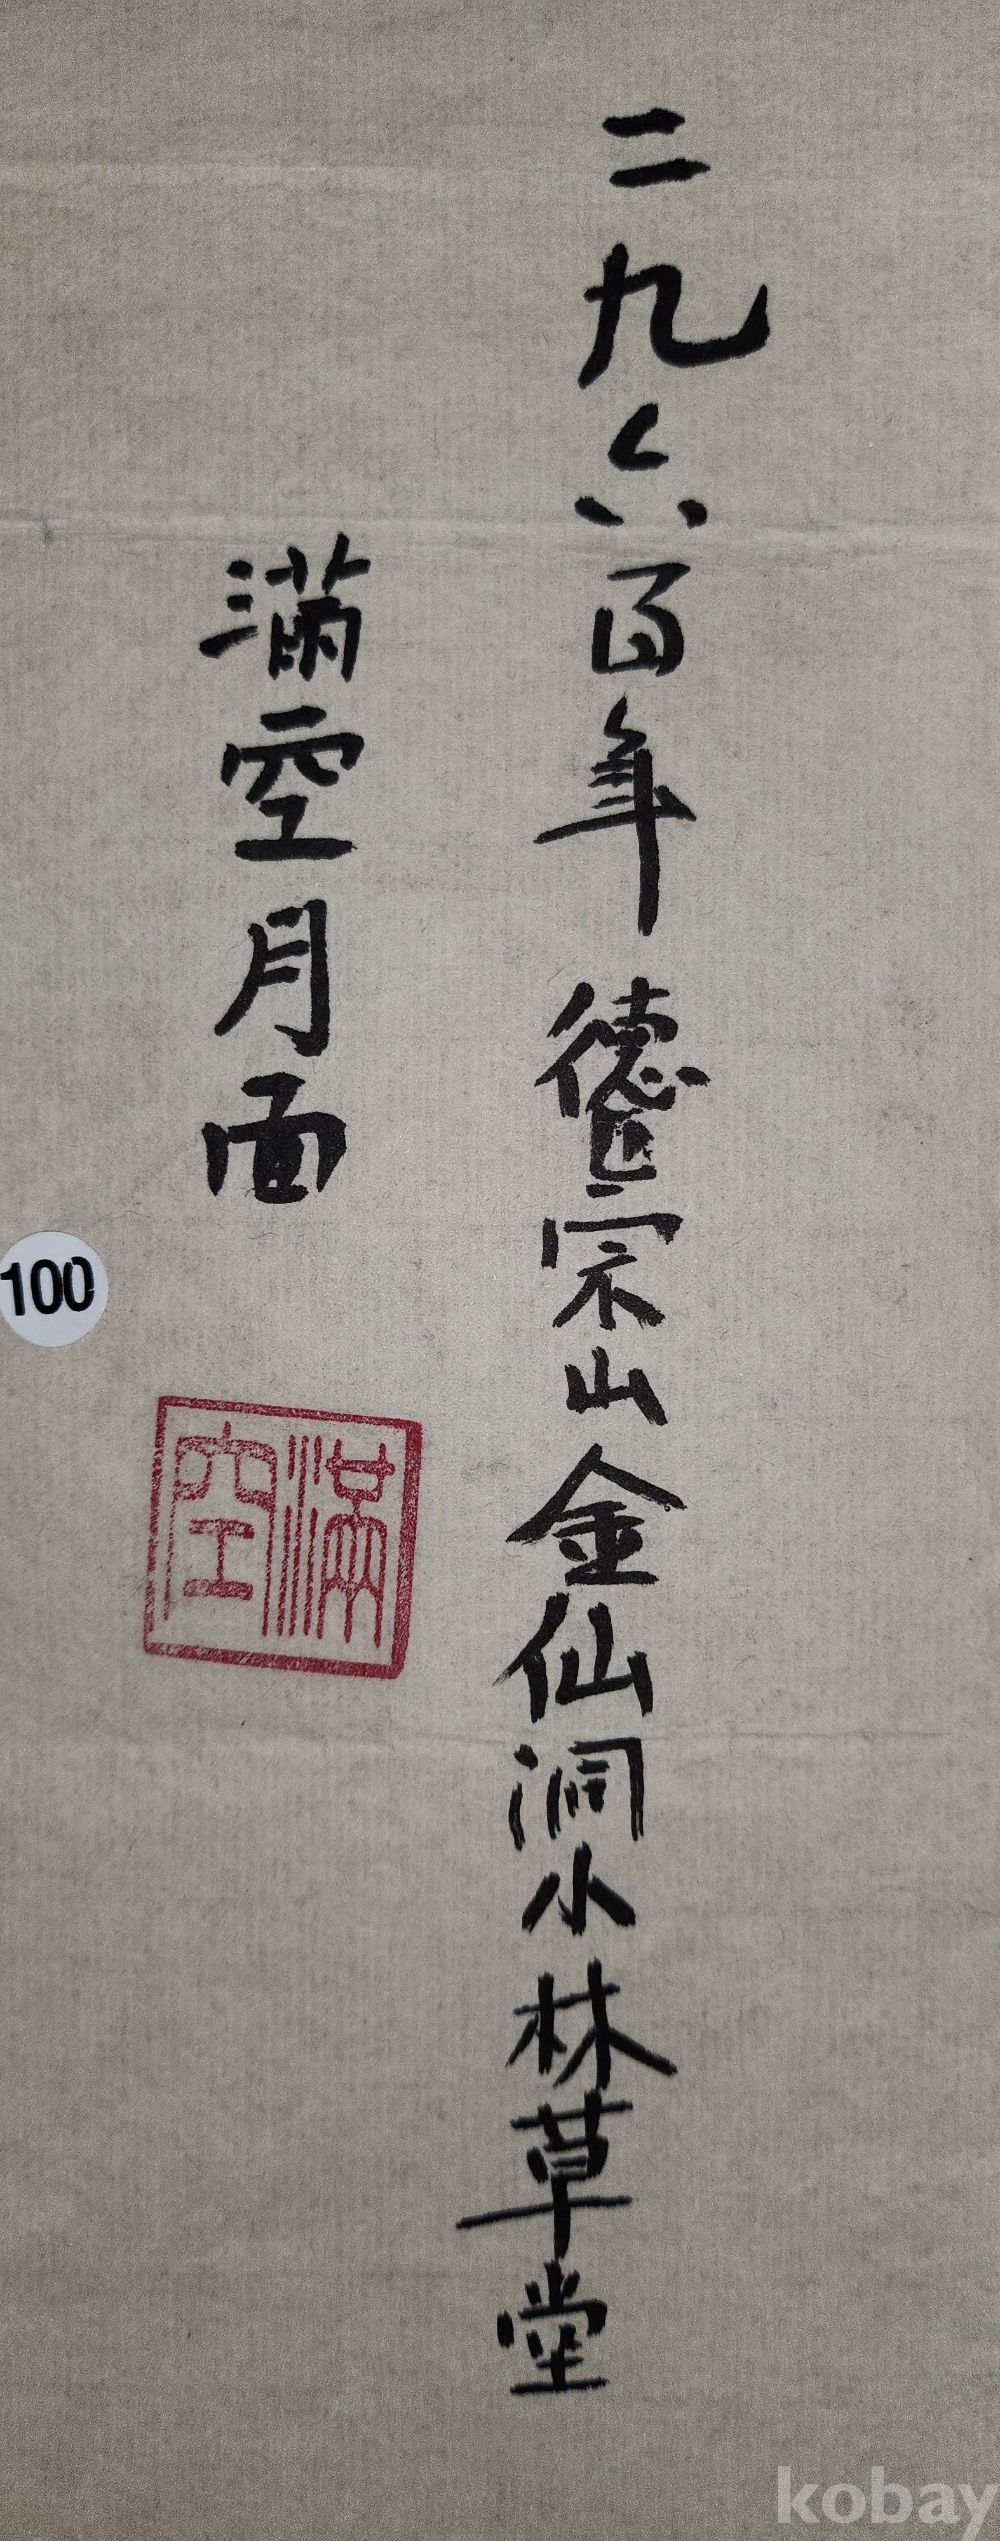 二九六百年 德崇山金仙洞小林草堂
滿空月面
滿空
100
kobay